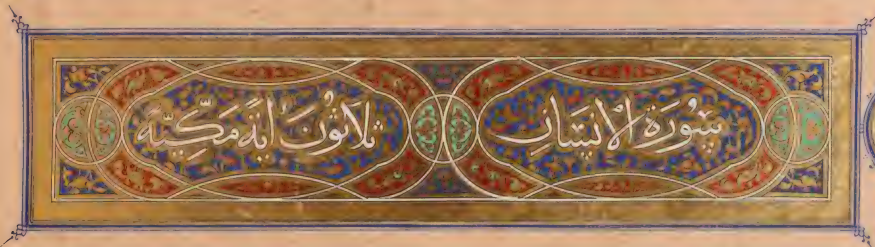 سُورَةُ الْإِنْسَانِ ثَلَاثُونَ آيَةً مَكِّيَّة